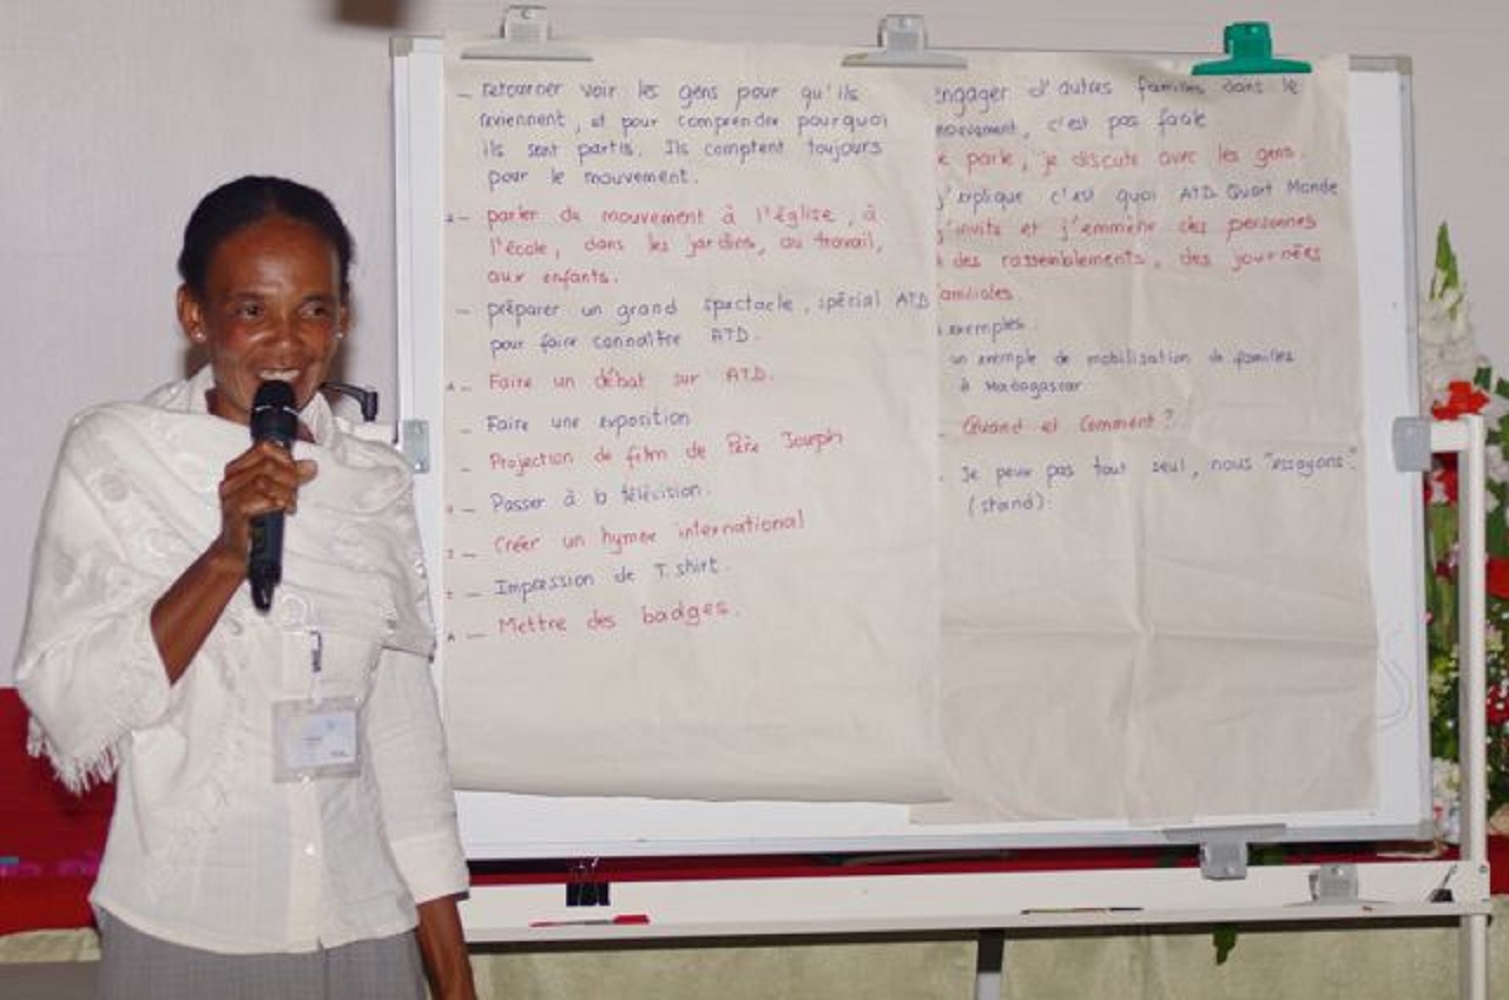 – retourner voir les gens pour qu'ils
reviennent, et pour comprendre pourquoi
ils sont partis. Ils comptent toujours
pour le mouvement.
– parler du mouvement à l'église, à
l'école, dans les jardins, au travail,
aux enfants.
– préparer un grand spectacle, spécial ATD
pour faire connaître ATD.
– Faire un débat sur ATD.
– Faire une exposition
– Projection de film de Père Joseph
– Passer à la télévision.
– Créer un hymne international
– Impression de T.shirt.
– Mettre des badges.
engager d'autres familles dans le
mouvement, c'est pas facile
parle, je discute avec les gens.
j'explique c'est quoi ATD Quart Monde
j'invite et j'emmène des personnes
des rassemblements, des journées
familiales.
exemples:
un exemple de mobilisation de familles
à Madagascar
- Quand et Comment ?
- Je peux pas tout seul, nous "essayons".
(stand).